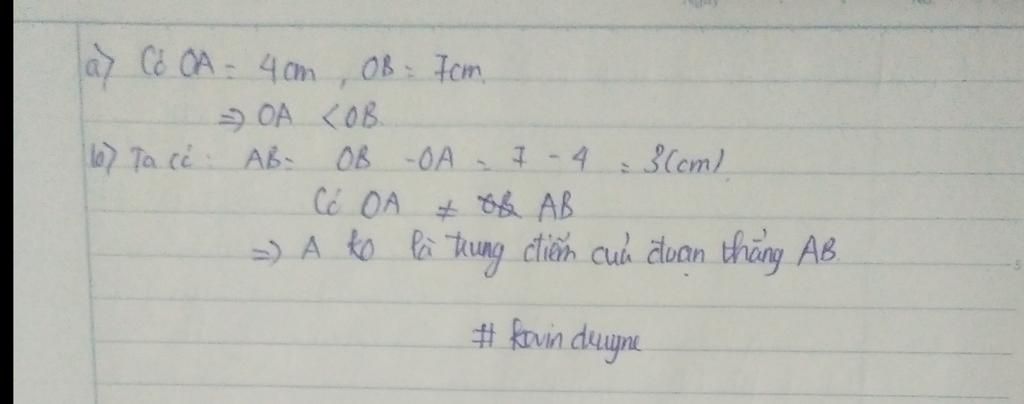 a) Có OA = 4cm, OB = 7cm.
=> OA < OB.
b) Ta có: AB = OB - OA = 7 - 4 = 3(cm).
Có OA ≠ AB
=> A ko là trung điểm của đoạn thẳng AB.
# kevin